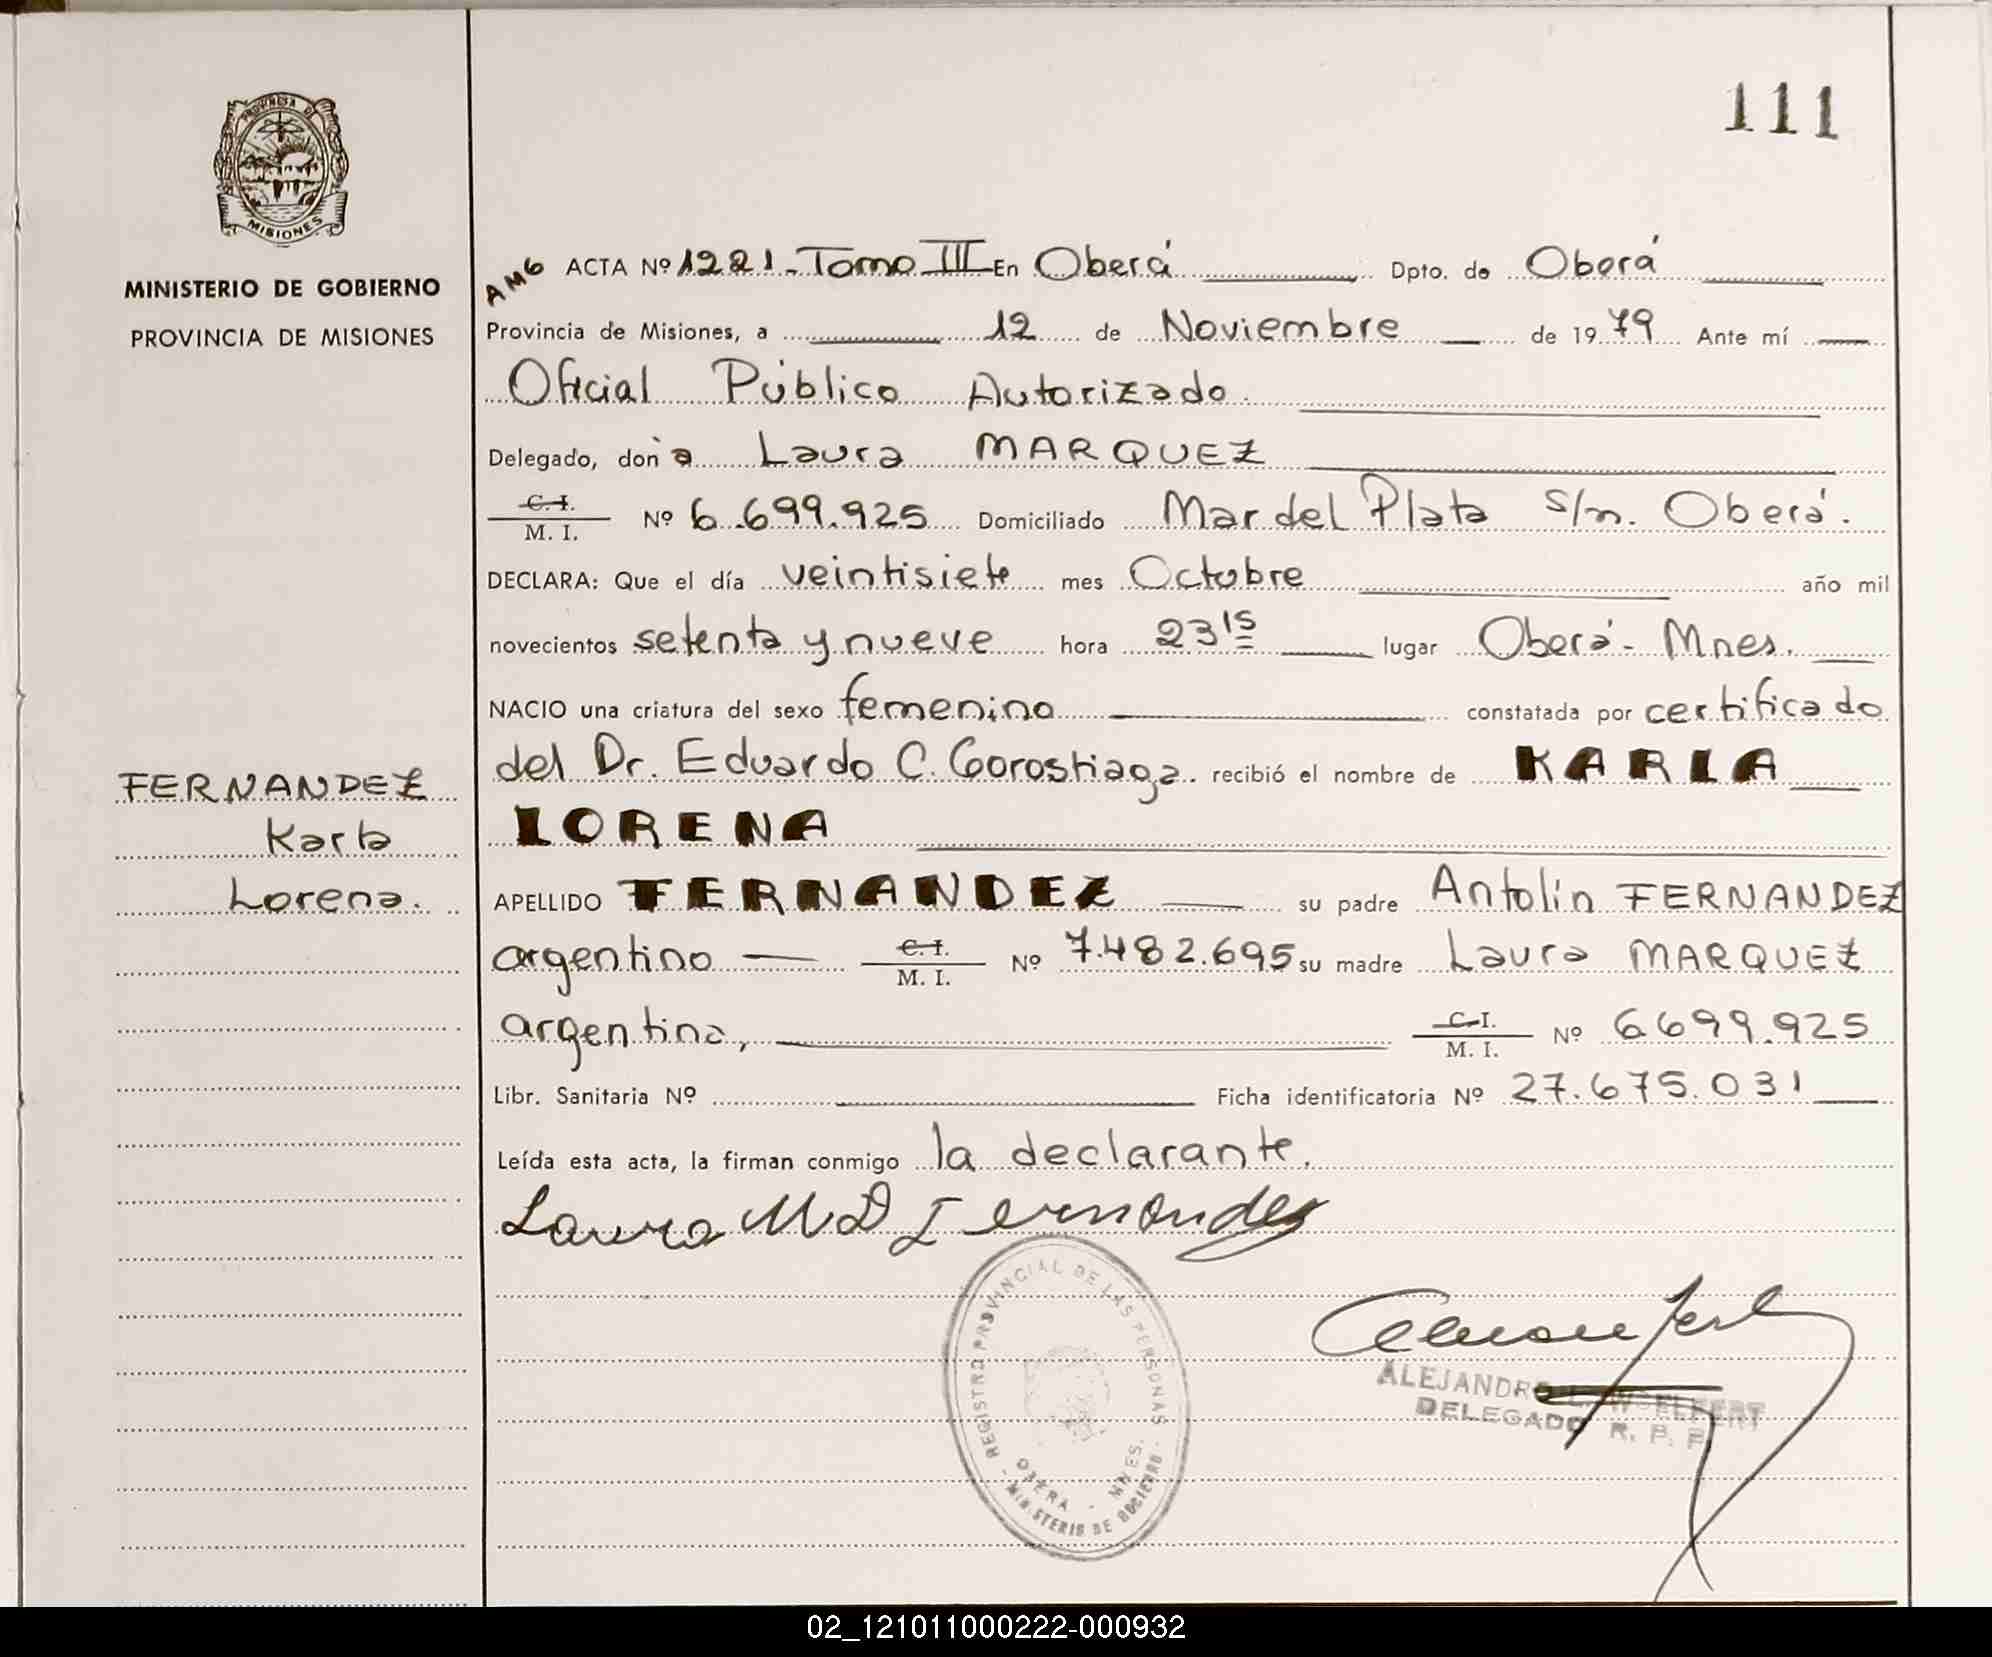 111
PROVINCIA DE
MISIONES
MINISTERIO DE GOBIERNO
PROVINCIA DE MISIONES
FERNANDEZ
Karla
Lorena.
AMG ACTA Nº 1221 - Tomo III En Oberá Dpto. de Oberá
Provincia de Misiones, a 12 de Noviembre de 1979 Ante mí
Oficial Público Autorizado.
Delegado, doña Laura MARQUEZ
C. I.
M. I. Nº 6.699.925 Domiciliado Mar del Plata s/n. Oberá.
DECLARA: Que el día veintisiete mes Octubre año mil
novecientos setenta y nueve hora 23 15 lugar Oberá - Mnes.
NACIO una criatura del sexo femenino constatada por certificado
del Dr. Eduardo C. Gorostiaga. recibió el nombre de KARLA
LORENA
APELLIDO FERNANDEZ su padre Antolín FERNANDEZ
argentino C. I. M. I. Nº 7.482.695 su madre Laura MARQUEZ
argentina, C. I. M. I. Nº 6.699.925
Libr. Sanitaria Nº Ficha identificatoria Nº 27.675.031
Leída esta acta, la firman conmigo la declarante.
Laura M D Fernandez
REGISTRO PROVINCIAL DE LAS PERSONAS
OBERA - MNES.
- MINISTERIO DE GOBIERNO -
ALEJANDRO L. WOELFERT
DELEGADO R. P. P.
02_121011000222-000932